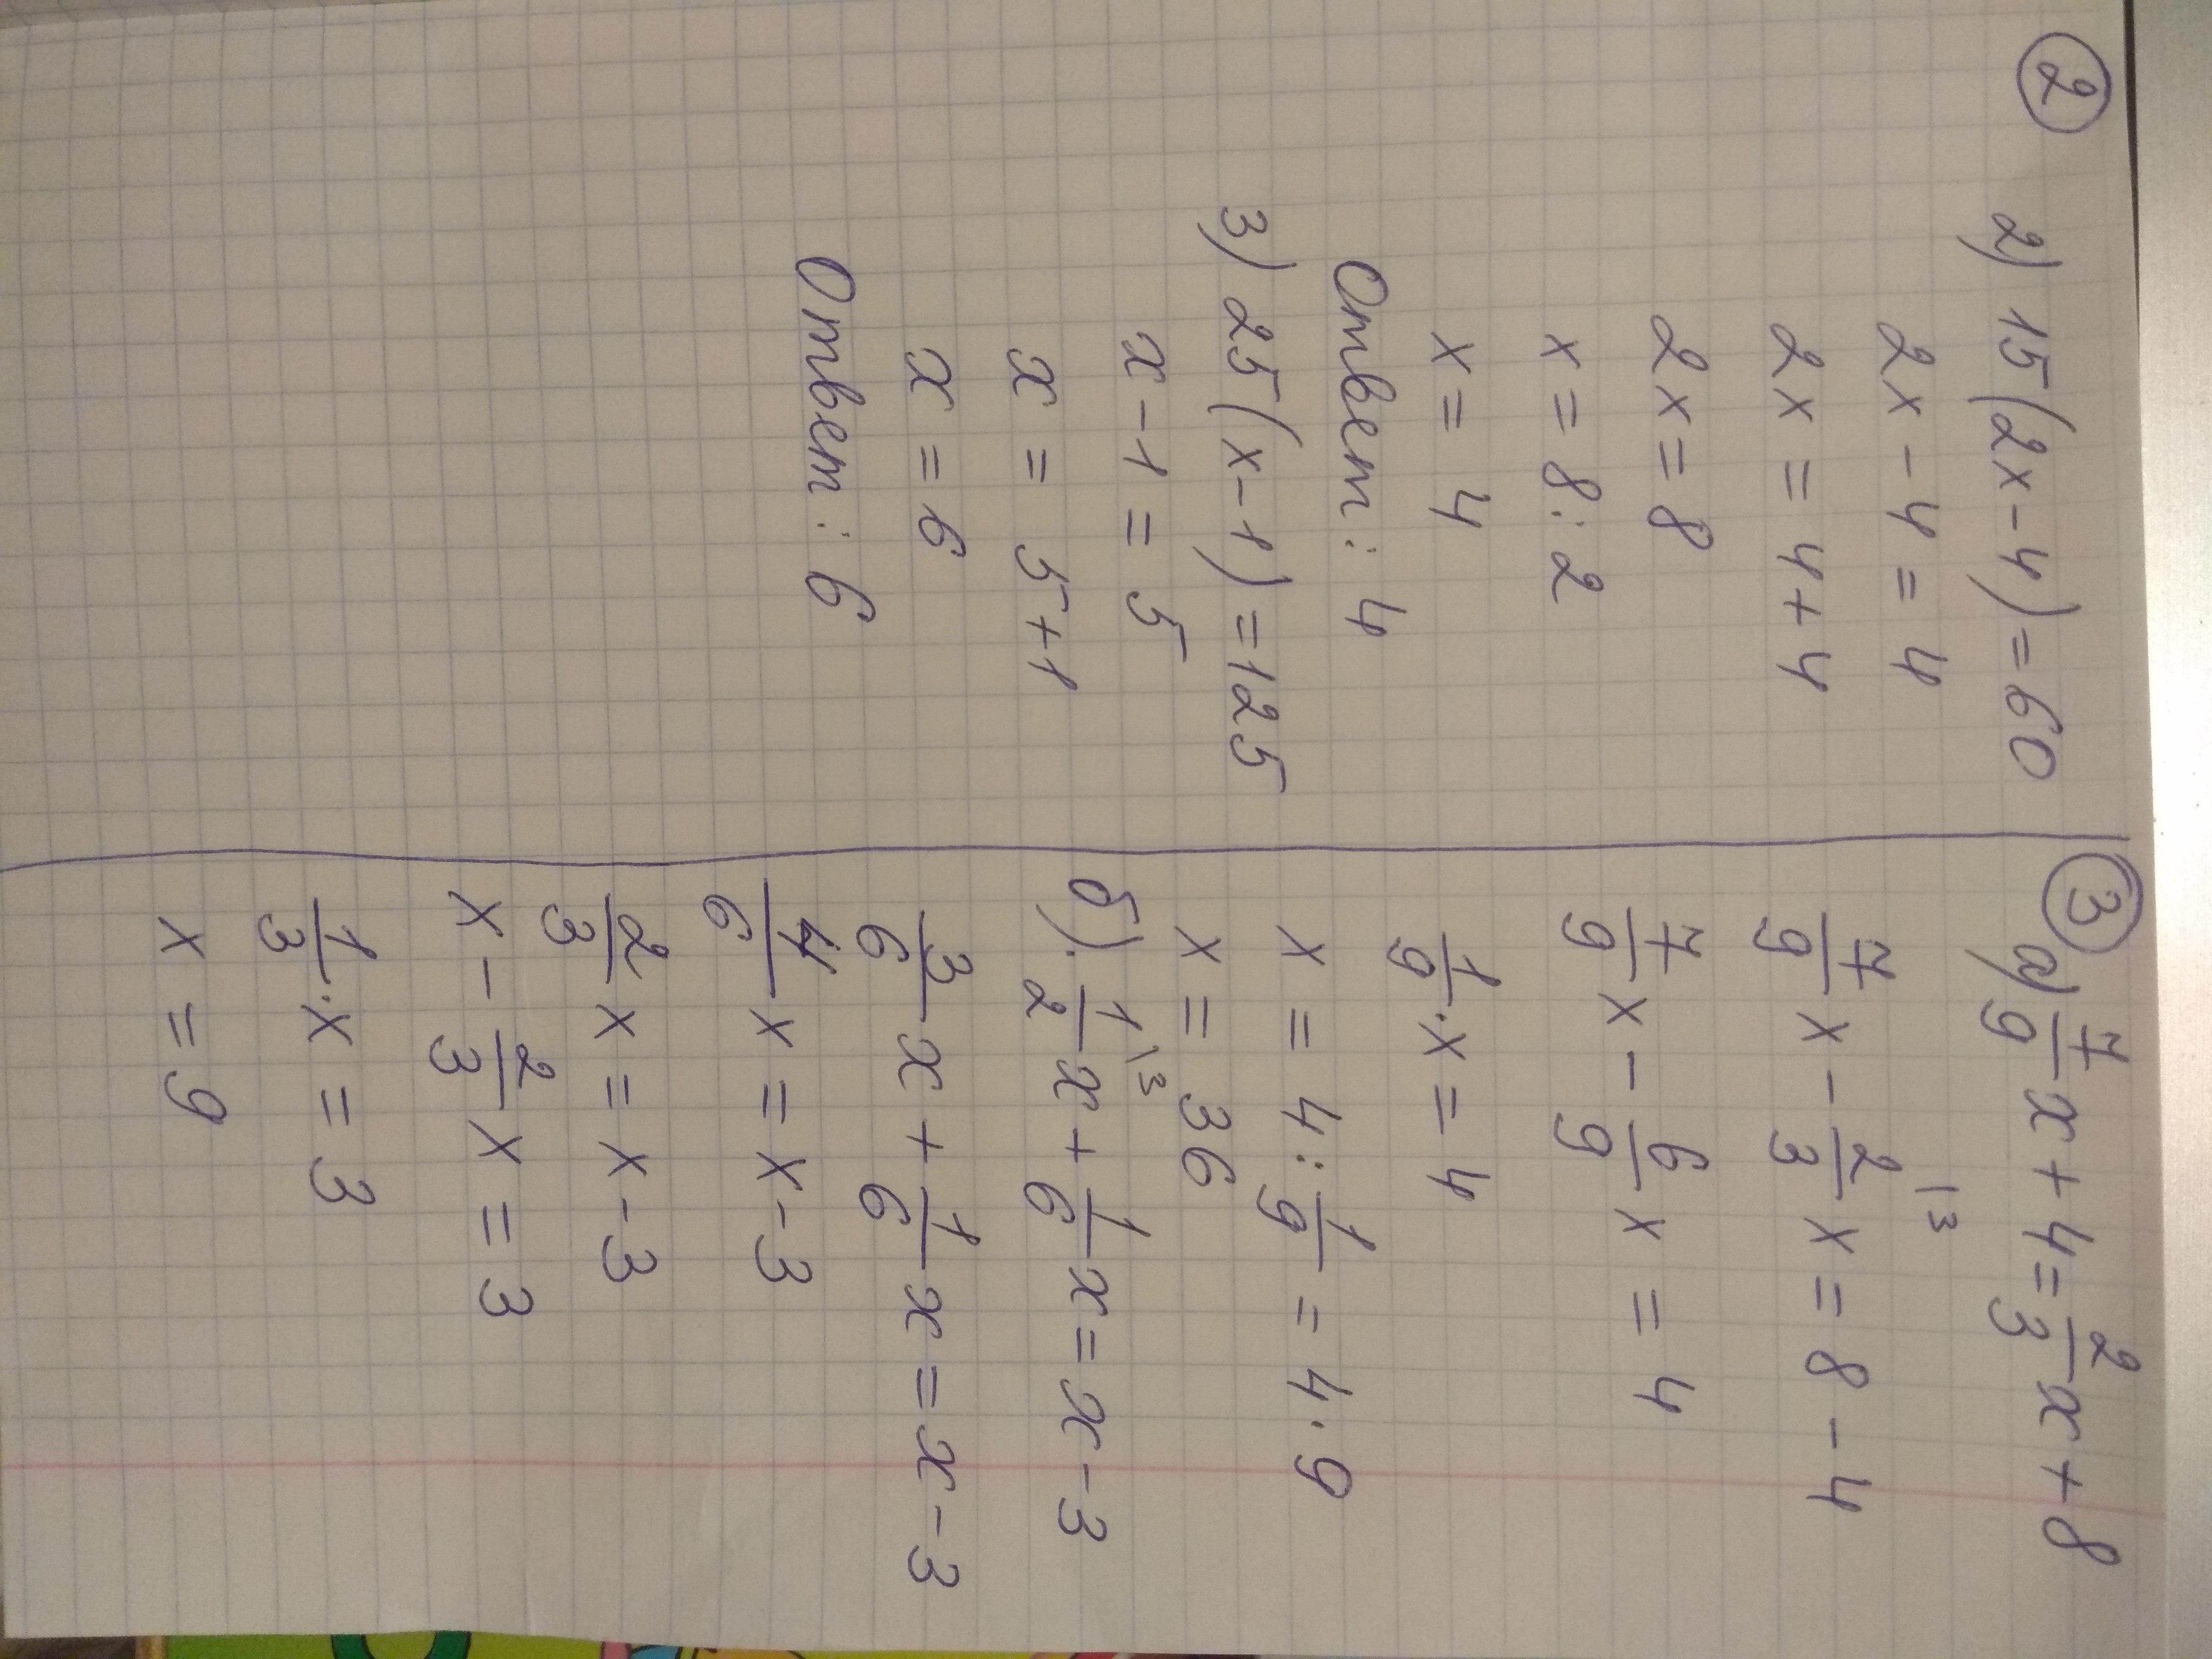 ②
2) 15(2x-4)=60
2x-4=4
2x=4+4
2x=8
x=8:2
x=4
Ответ: 4
3) 25(x-1)=125
x-1=5
x=5+1
x=6
Ответ: 6
③
а) 7/9 x+4=2/3 x+8
7/9 x-2/3\3 x=8-4
7/9 x-6/9 x=4
1/9·x=4
x=4:1/9=4·9
x=36
б). 1/2\3 x+1/6 x=x-3
3/6 x+1/6 x=x-3
4/6 x=x-3
2/3 x=x-3
x-2/3 x=3
1/3·x=3
x=9